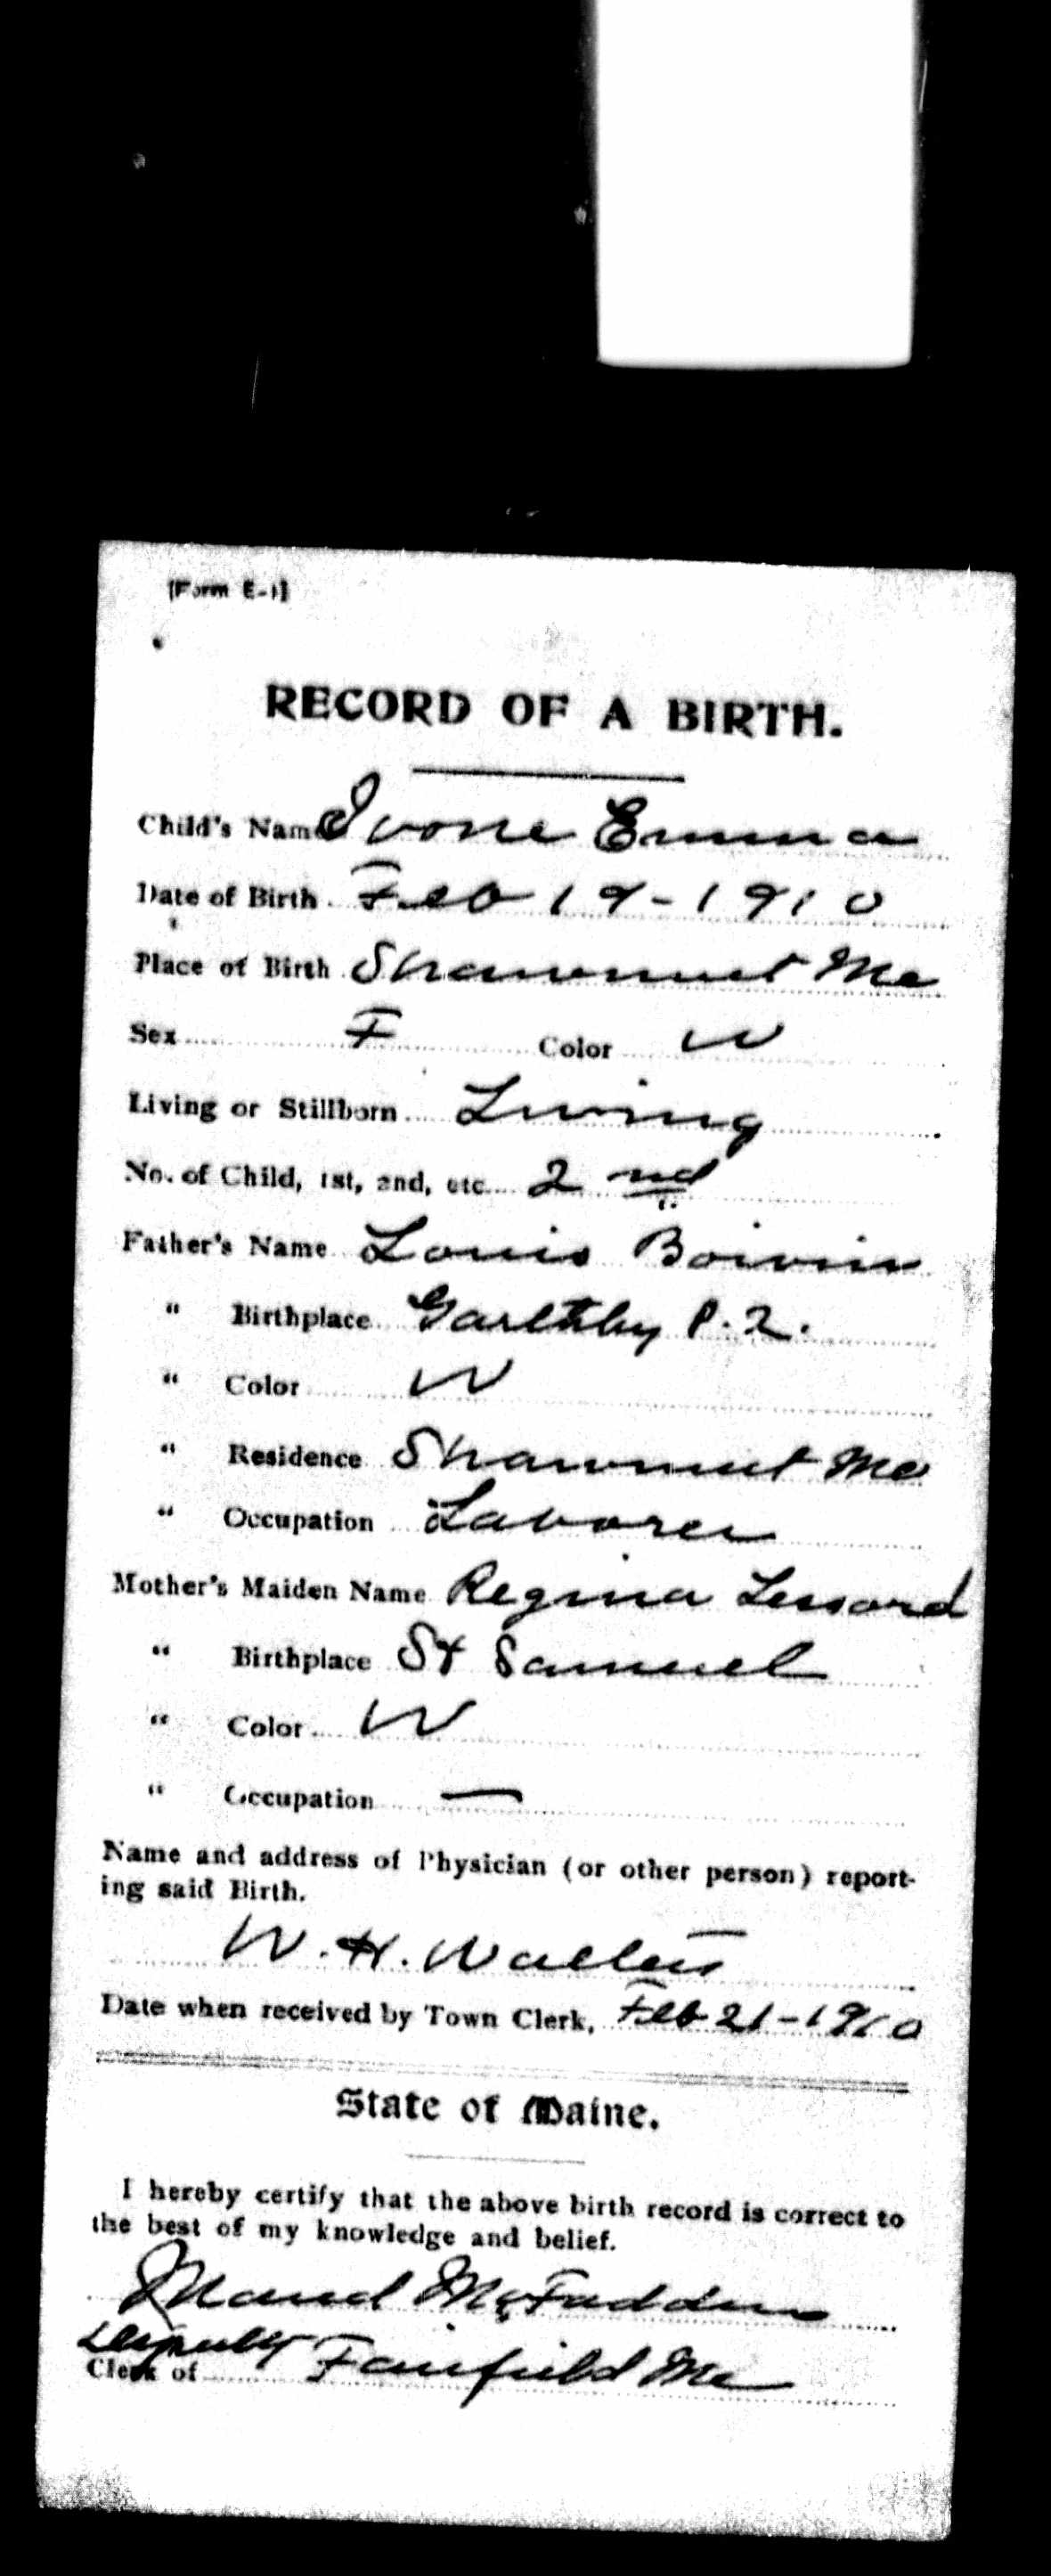 [Form E-1]
RECORD OF A BIRTH.
Child's Name Ivone Emma
Date of Birth Feb 19-1910
Place of Birth Shawmut Me
Sex F Color W
Living or Stillborn Living
No. of Child, 1st, 2nd, etc. 2nd
Father's Name Louis Boivin
" Birthplace Garthby P.Q.
" Color W
" Residence Shawmut Me
" Occupation Laborer
Mother's Maiden Name Regina Lessard
" Birthplace St Samuel
" Color W
" Occupation —
Name and address of Physician (or other person) report-
ing said Birth.
W. H. Walters
Date when received by Town Clerk, Feb 21-1910
State of Maine.
I hereby certify that the above birth record is correct to
the best of my knowledge and belief.
Maud McFadden
Deputy
Clerk of Fairfield Me